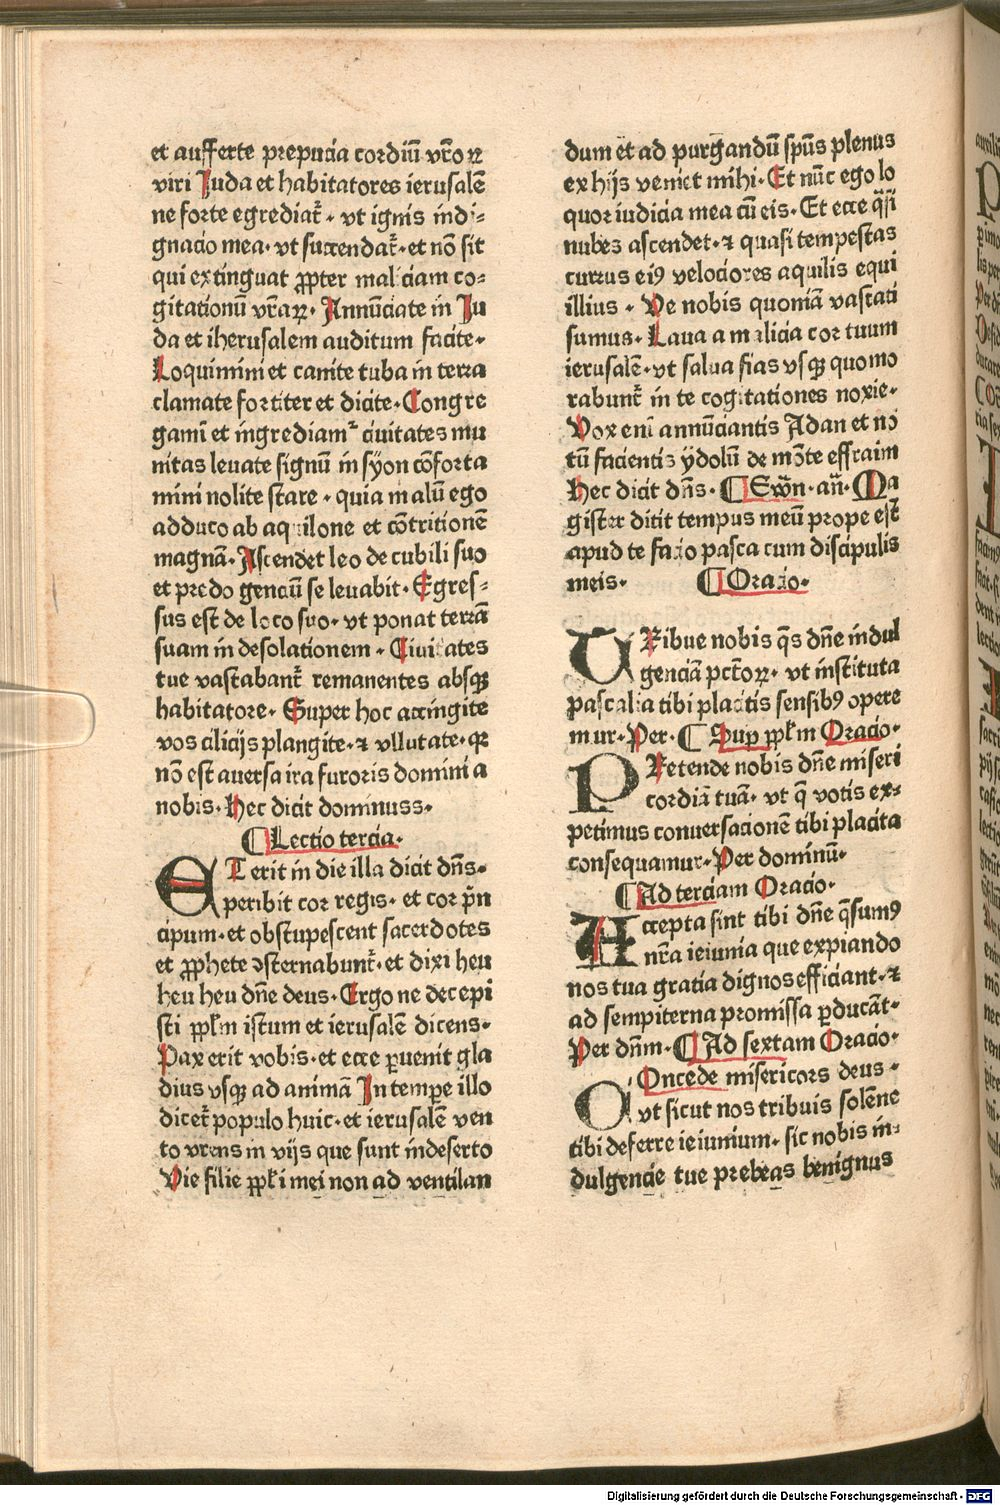 et aufferte prepucia cordiū vr̄oꝝ
viri Juda et habitatores ierusalē
ne forte egrediat᷑ · vt ignis indi⸗
gnacio mea· vt succendat᷑· et nō sit
qui extinguat ꝓpter maliciam co⸗
gitationū vr̄aꝝ· Annūciate in Ju
da et iherusalem auditum facite·
Loquimini et canite tuba in terra
clamate fortiter et dicite· Congre
gamī et ingrediamᷣ ciuitates mu
nitas leuate signū in syon cōforta
mini nolite stare · quia malū ego
adduco ab aquilone et cōtritionē
magnā· Ascendet leo de cubili suo
et predo genciū se leuabit· Egres⸗
sus est de loco suo· vt ponat terrā
suam in desolationem · Ciuitates
tue vastabant᷑ remanentes absqꝫ
habitatore· Super hoc accingite
vos cilicijs plangite· ⁊ vllutate· qꝛ
nō est auersa ira furoris domini a
nobis· Hec dicit dominuss·
¶ Lectio tercia·
ET erit in die illa dicit dn̄s·
peribit cor regis· et cor pn̄
cipum· et obstupescent sacerdotes
et ꝓphete ꝯsternabunt᷑· et dixi heu
heu heu dn̄e deus· Ergo ne decepi
sti ppl̄m istum et ierusalē dicens·
Pax erit vobis· et ecce ꝑuenit gla
dius vsqꝫ ad animā In tempe illo
dicet᷑ populo huic· et ierusalē ven
to vrens in vijs que sunt indeserto
Vie filie ppl̄i mei non ad ventilan
dum et ad purgandū spūs plenus
ex hijs veniet mihi· Et nūc ego lo
quor iudicia mea cū eis· Et ecce q̄si
nubes ascendet· ⁊ quasi tempestas
currus eiꝰ velociores aquilis equi
illius · Ve nobis quoniā vastati
sumus· Laua a malicia cor tuum
ierusalē· vt salua fias vsqꝫ quomo
rabunt᷑ in te cogitationes noxie·
Vox enī annūciantis Adan et no
tū facientis ydolū de mōte effraim
Hec dicit dn̄s· ¶ Ewn̄· an̄· Ma
gister dicit tempus meū prope est
apud te facio pasca cum discipulis
meis· ¶ Oracio·
TRibue nobis q̄s dn̄e indul
genciā pct̄oꝝ· vt instituta
pascalia tibi placitis sensibꝰ opere
mur· Per· ¶ Sup ppl̄m Oracio·
PRetende nobis dn̄e miseri
cordiā tuā· vt q̄ votis ex⸗
petimus conuersacionē tibi placita
consequamur· Per dominū·
¶ Ad terciam Oracio·
Accepta sint tibi dn̄e q̄sumꝰ
nr̄a ieiunia que expiando
nos tua gratia dignos efficiant· ⁊
ad sempiterna promissa ꝑducāt·
Per dn̄m· ¶ Ad sextam Oracio·
COncede misericors deus ·
vt sicut nos tribuis solēne
tibi deferre ieiunium· sic nobis in⸗
dulgencie tue prebeas benignus
Digitalisierung gefördert durch die Deutsche Forschungsgemeinschaft - DFG